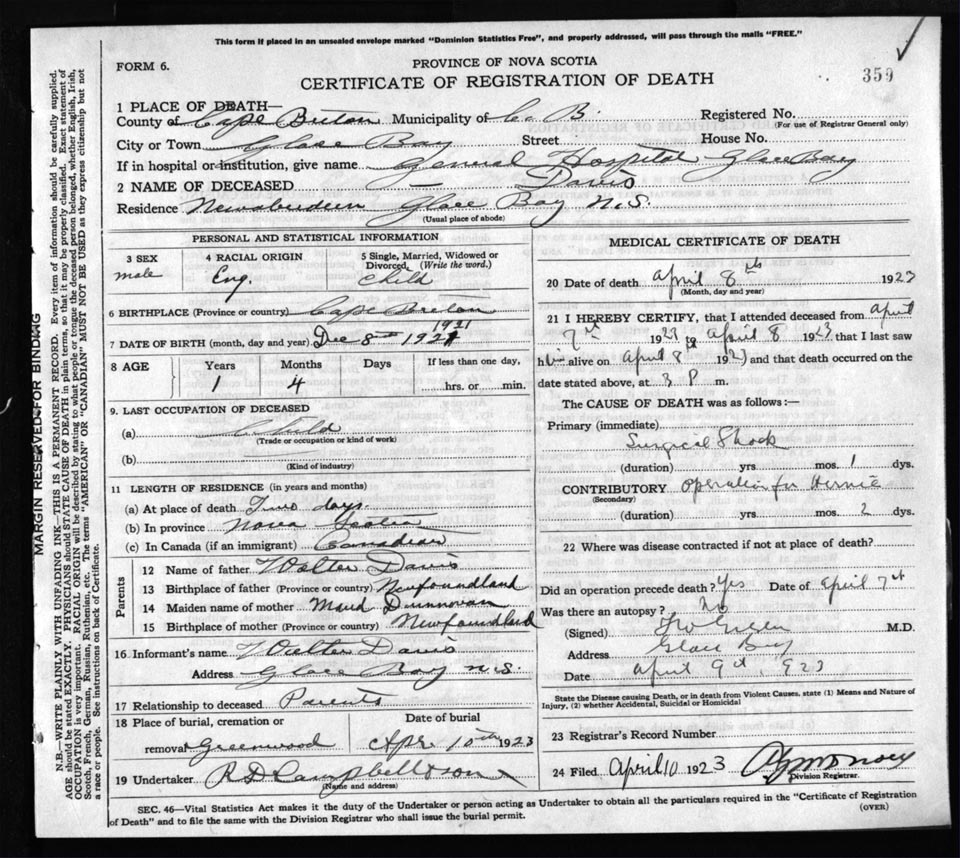 This form if placed in an unsealed envelope marked "Dominion Statistics Free", and properly addressed, will pass through the mails "FREE."
FORM 6.
PROVINCE OF NOVA SCOTIA
CERTIFICATE OF REGISTRATION OF DEATH
359
1 PLACE OF DEATH—
County of Cape Breton Municipality of C. B. Registered No.
(For use of Registrar General only)
City or Town Glace Bay Street House No.
If in hospital or institution, give name General Hospital Glace Bay
2 NAME OF DECEASED — Davis
Residence Newaberdeen Glace Bay N.S.
(Usual place of abode)
PERSONAL AND STATISTICAL INFORMATION
3 SEX
male
4 RACIAL ORIGIN
Eng.
5 Single, Married, Widowed or Divorced. (Write the word.)
Child
6 BIRTHPLACE (Province or country) Cape Breton
1921
7 DATE OF BIRTH (month, day and year) Dec 8th 1921
8 AGE
Years
1
Months
4
Days
If less than one day,
hrs. or min.
9. LAST OCCUPATION OF DECEASED
(a) Child
(Trade or occupation or kind of work)
(b)
(Kind of industry)
11 LENGTH OF RESIDENCE (in years and months)
(a) At place of death Two days.
(b) In province Nova Scotia
(c) In Canada (if an immigrant) Canadian
Parents
12 Name of father Walter Davis
13 Birthplace of father (Province or country) Newfoundland
14 Maiden name of mother Maud Dunnovan
15 Birthplace of mother (Province or country) Newfoundland
16 Informant's name Walter Davis
Address Glace Bay N.S.
17 Relationship to deceased Parents
18 Place of burial, cremation or
removal Greenwood
Date of burial
Apr 10th 1923
19 Undertaker R D Campbell & son
(Name and address)
MEDICAL CERTIFICATE OF DEATH
20 Date of death April 8th 1923
(Month, day and year)
21 I HEREBY CERTIFY, that I attended deceased from April
7th 1923 to April 8 1923 that I last saw
him alive on April 8th 1923 and that death occurred on the
date stated above, at 3 P m.
The CAUSE OF DEATH was as follows:—
Primary (immediate)
Surgical Shock
(duration) yrs. mos. 1 dys.
CONTRIBUTORY Operation for Hernia
(Secondary)
(duration) yrs. mos. 2 dys.
22 Where was disease contracted if not at place of death?
Did an operation precede death? Yes Date of April 7th
Was there an autopsy? No
(Signed) M.D.
Address Glace Bay
Date April 9th, 1923
State the Disease causing Death, or in death from Violent Causes, state (1) Means and Nature of Injury, (2) whether Accidental, Suicidal or Homicidal
23 Registrar's Record Number
24 Filed April 10 1923
Division Registrar.
SEC. 46—Vital Statistics Act makes it the duty of the Undertaker or person acting as Undertaker to obtain all the particulars required in the "Certificate of Registration
of Death" and to file the same with the Division Registrar who shall issue the burial permit.
(OVER)
MARGIN RESERVED FOR BINDING
N.B.—WRITE PLAINLY WITH UNFADING INK—THIS IS A PERMANENT RECORD. Every item of information should be carefully supplied.
AGE should be stated EXACTLY. PHYSICIANS should STATE CAUSE OF DEATH in plain terms, so that it may be properly classified. Exact statement of
OCCUPATION is very important. RACIAL ORIGIN will be described by stating to what people or tongue the deceased person belonged, whether English, Irish,
Scotch, French, German, Russian, Ruthenian, etc. The terms "AMERICAN" OR "CANADIAN" MUST NOT BE USED as they express citizenship but not
a race or people. See instructions on back of Certificate.